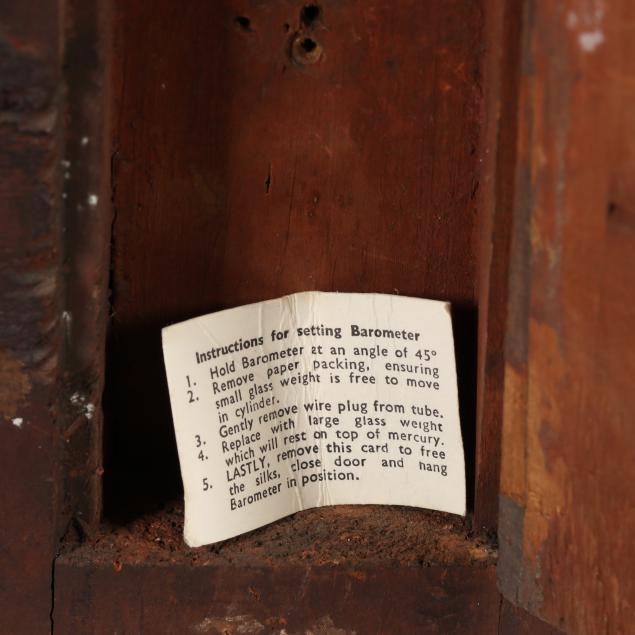 Instructions for setting Barometer
1. Hold Barometer at an angle of 45°
2. Remove paper packing, ensuring
small glass weight is free to move
in cylinder.
3. Gently remove wire plug from tube.
4. Replace with large glass weight
which will rest on top of mercury.
5. LASTLY, remove this card to free
the silks, close door and hang
Barometer in position.